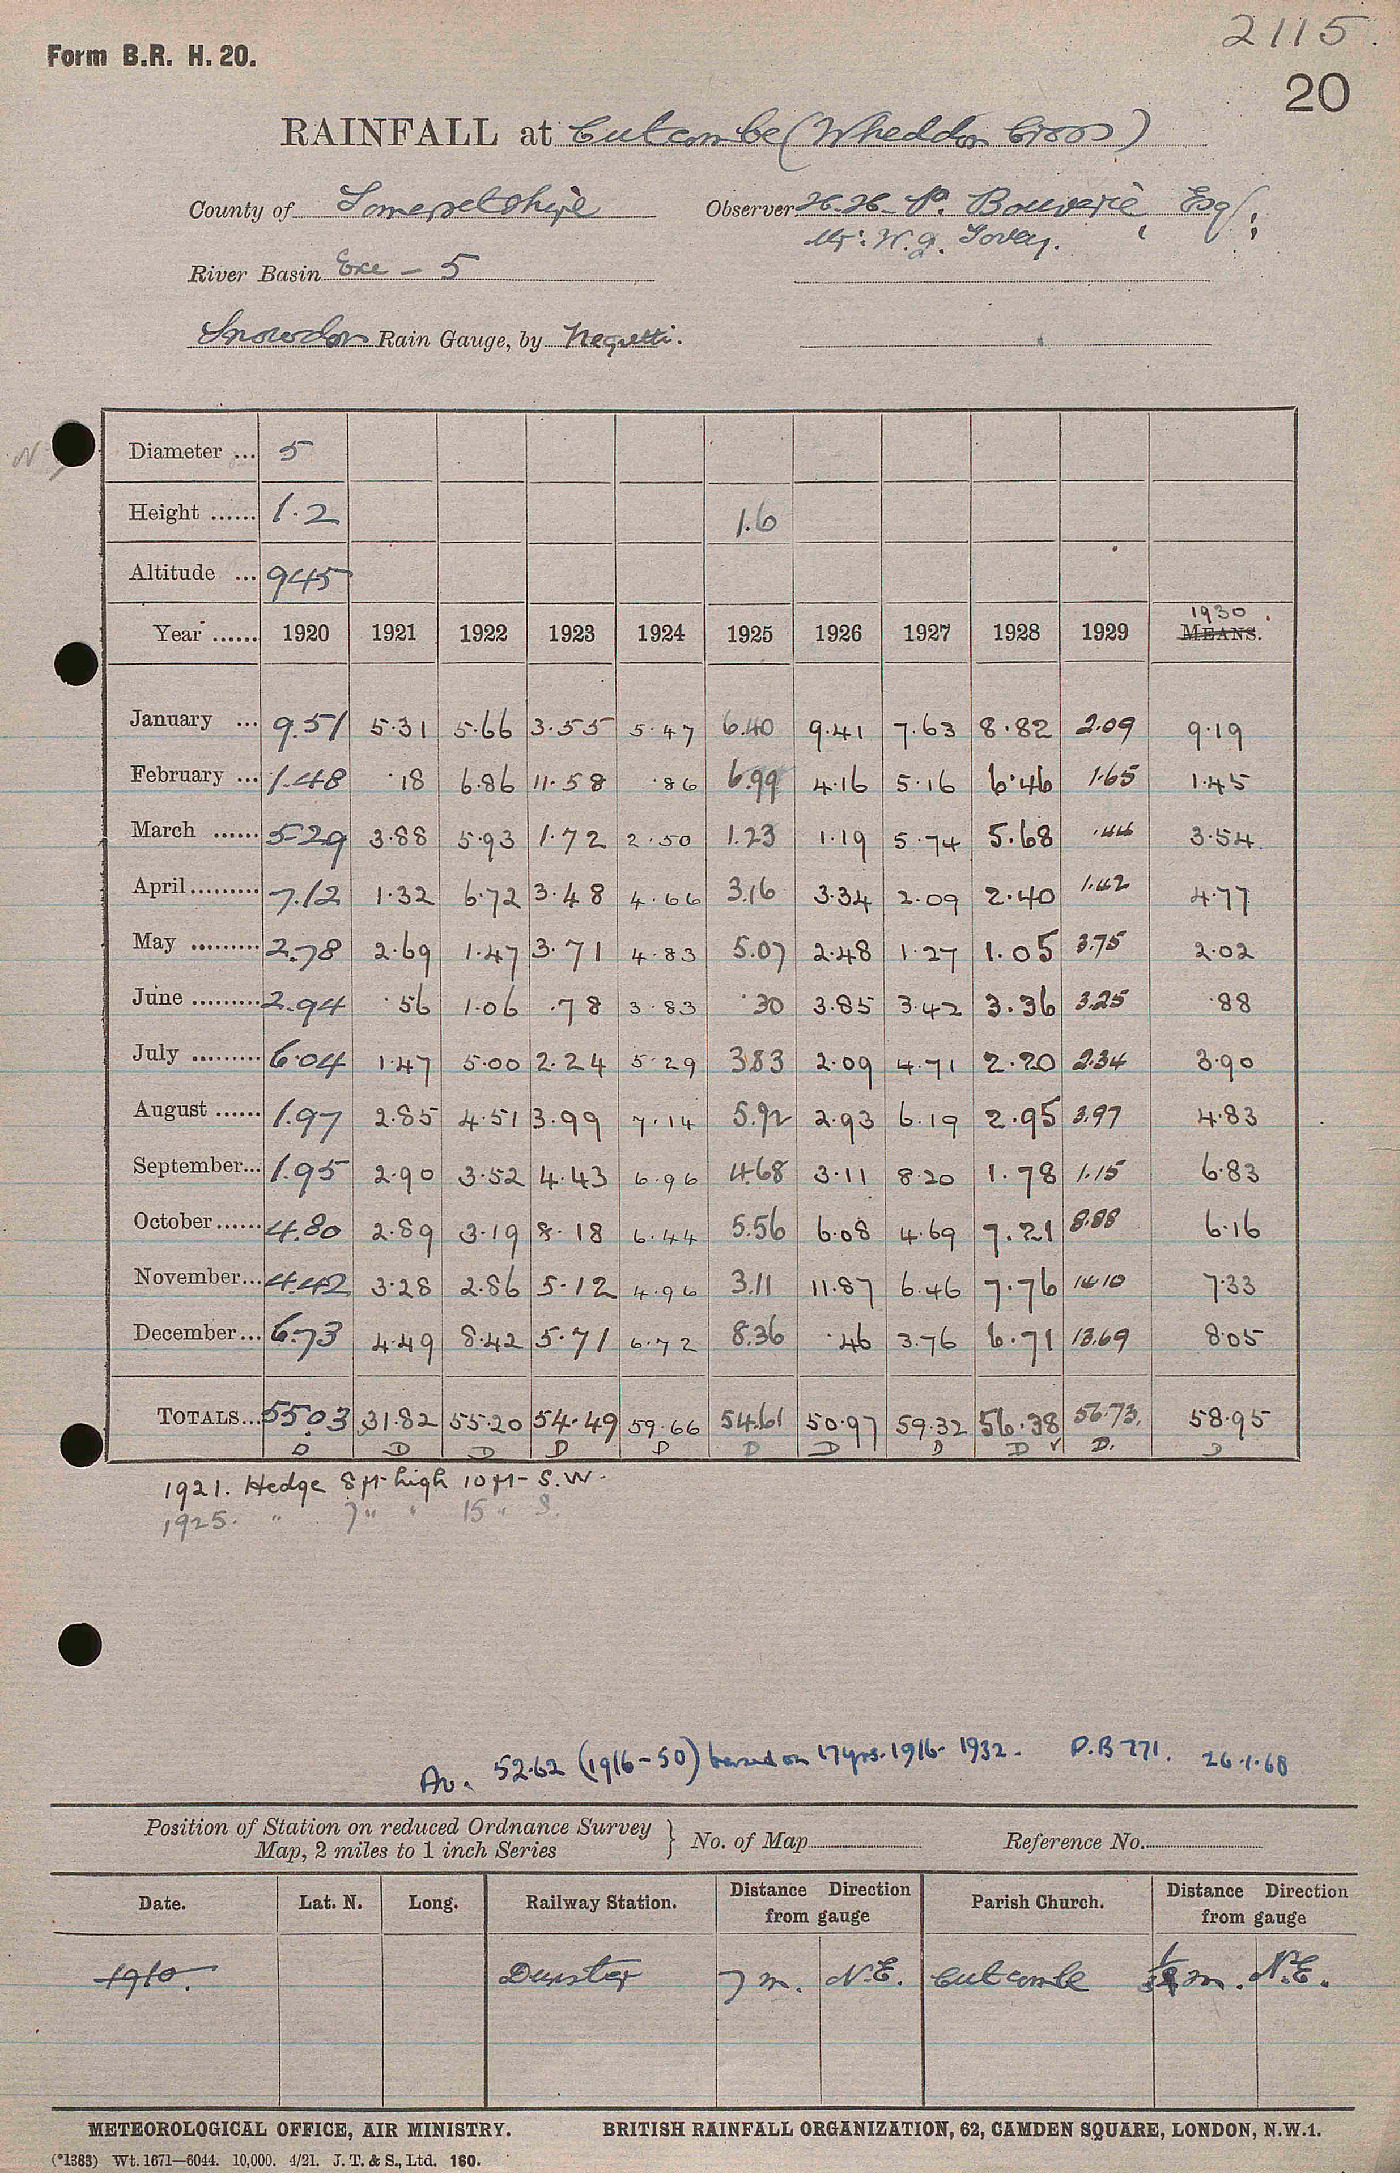 2115.
Form B.R. H. 20.
20
RAINFALL at Cutcombe (Wheddon Cross)
County of Somersetshire Observer H. H. P. Bouverie, Esq;
Mr. W. J. Tovey.
River Basin Exe - 5
Snowdon Rain Gauge, by Negretti.
Diameter ... 5
Height ...... 1.2 1.6
Altitude ... 945
Year ...... 1920 1921 1922 1923 1924 1925 1926 1927 1928 1929 1930. MEANS.
January ... 9.51 5.31 5.66 3.55 5.47 6.40 9.41 7.63 8.82 2.09 9.19
February ... 1.48 .18 6.86 11.58 .86 6.99 4.16 5.16 6.46 1.65 1.45
March ...... 5.29 3.88 5.93 1.72 2.50 1.23 1.19 5.74 5.68 .44 3.54
April ......... 7.12 1.32 6.72 3.48 4.66 3.16 3.34 2.09 2.40 1.42 4.77
May ......... 2.78 2.69 1.47 3.71 4.83 5.07 2.48 1.27 1.05 3.75 2.02
June ......... 2.94 .56 1.06 .78 3.83 .30 3.85 3.42 3.36 3.25 .88
July ......... 6.04 1.47 5.00 2.24 5.29 3.83 2.09 4.71 2.20 2.34 3.90
August ...... 1.97 2.85 4.51 3.99 7.14 5.92 2.93 6.19 2.95 3.97 4.83
September... 1.95 2.90 3.52 4.43 6.96 4.68 3.11 8.20 1.78 1.15 6.83
October ...... 4.80 2.89 3.19 8.18 6.44 5.56 6.08 4.69 7.21 8.88 6.16
November... 4.42 3.28 2.86 5.12 4.96 3.11 11.87 6.46 7.76 14.10 7.33
December ... 6.73 4.49 8.42 5.71 6.72 8.36 .46 3.76 6.71 13.69 8.05
TOTALS... 55.03 31.82 55.20 54.49 59.66 54.61 50.97 59.32 56.38 56.73. 58.95
D D D D D D D D D ✓ D. D
1921. Hedge 8ft high 10ft S.W.
1925. " 7 " " 15 " S.
Av. 52.62 (1916-50) based on 17 yrs. 1916-1932. P.B 771. 26.1.68
Position of Station on reduced Ordnance Survey
Map, 2 miles to 1 inch Series } No. of Map Reference No.
Date. Lat. N. Long. Railway Station. Distance Direction from gauge Parish Church. Distance Direction from gauge
1910. Dunster 7 m. N.E. Cutcombe m. N.E.
METEOROLOGICAL OFFICE, AIR MINISTRY. BRITISH RAINFALL ORGANIZATION, 62, CAMDEN SQUARE, LONDON, N.W.1.
(*1383) Wt. 1671—6044. 10,000. 4/21. J. T. & S., Ltd. 160.